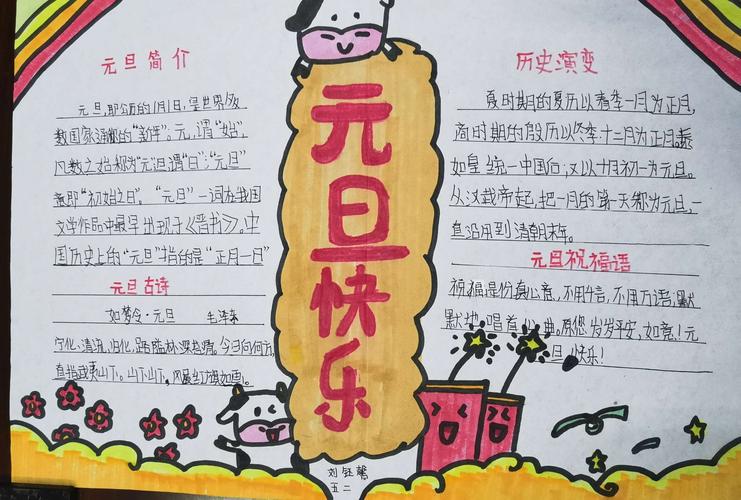 元旦快乐
元旦简介
元旦,即公历的1月1日,是世界多
数国家通称的“新年”。元,谓“始”,
凡数之始称为“元”;旦,谓“日”;“元旦”
意即“初始之日”。“元旦”一词在我国
文学作品中最早出现于《晋书》。中
国历史上的“元旦”指的是“正月一日”
元旦古诗
如梦令·元旦 毛泽东
宁化、清流、归化,路隘林深苔滑。今日向何方,
直指武夷山下。山下山下,风展红旗如画。
历史演变
夏时期的夏历以春季一月为正月,
商时期的殷历以冬季十二月为正月。秦
始皇统一中国后,又以十月初一为元旦。
从汉武帝起,把一月的第一天都为元旦,一
直沿用到清朝末年。
元旦祝福语
祝福是份真心意,不用千言,不用万语,默
默地唱首心曲。愿您岁岁平安,如意!元
旦快乐!
刘钰馨
五二